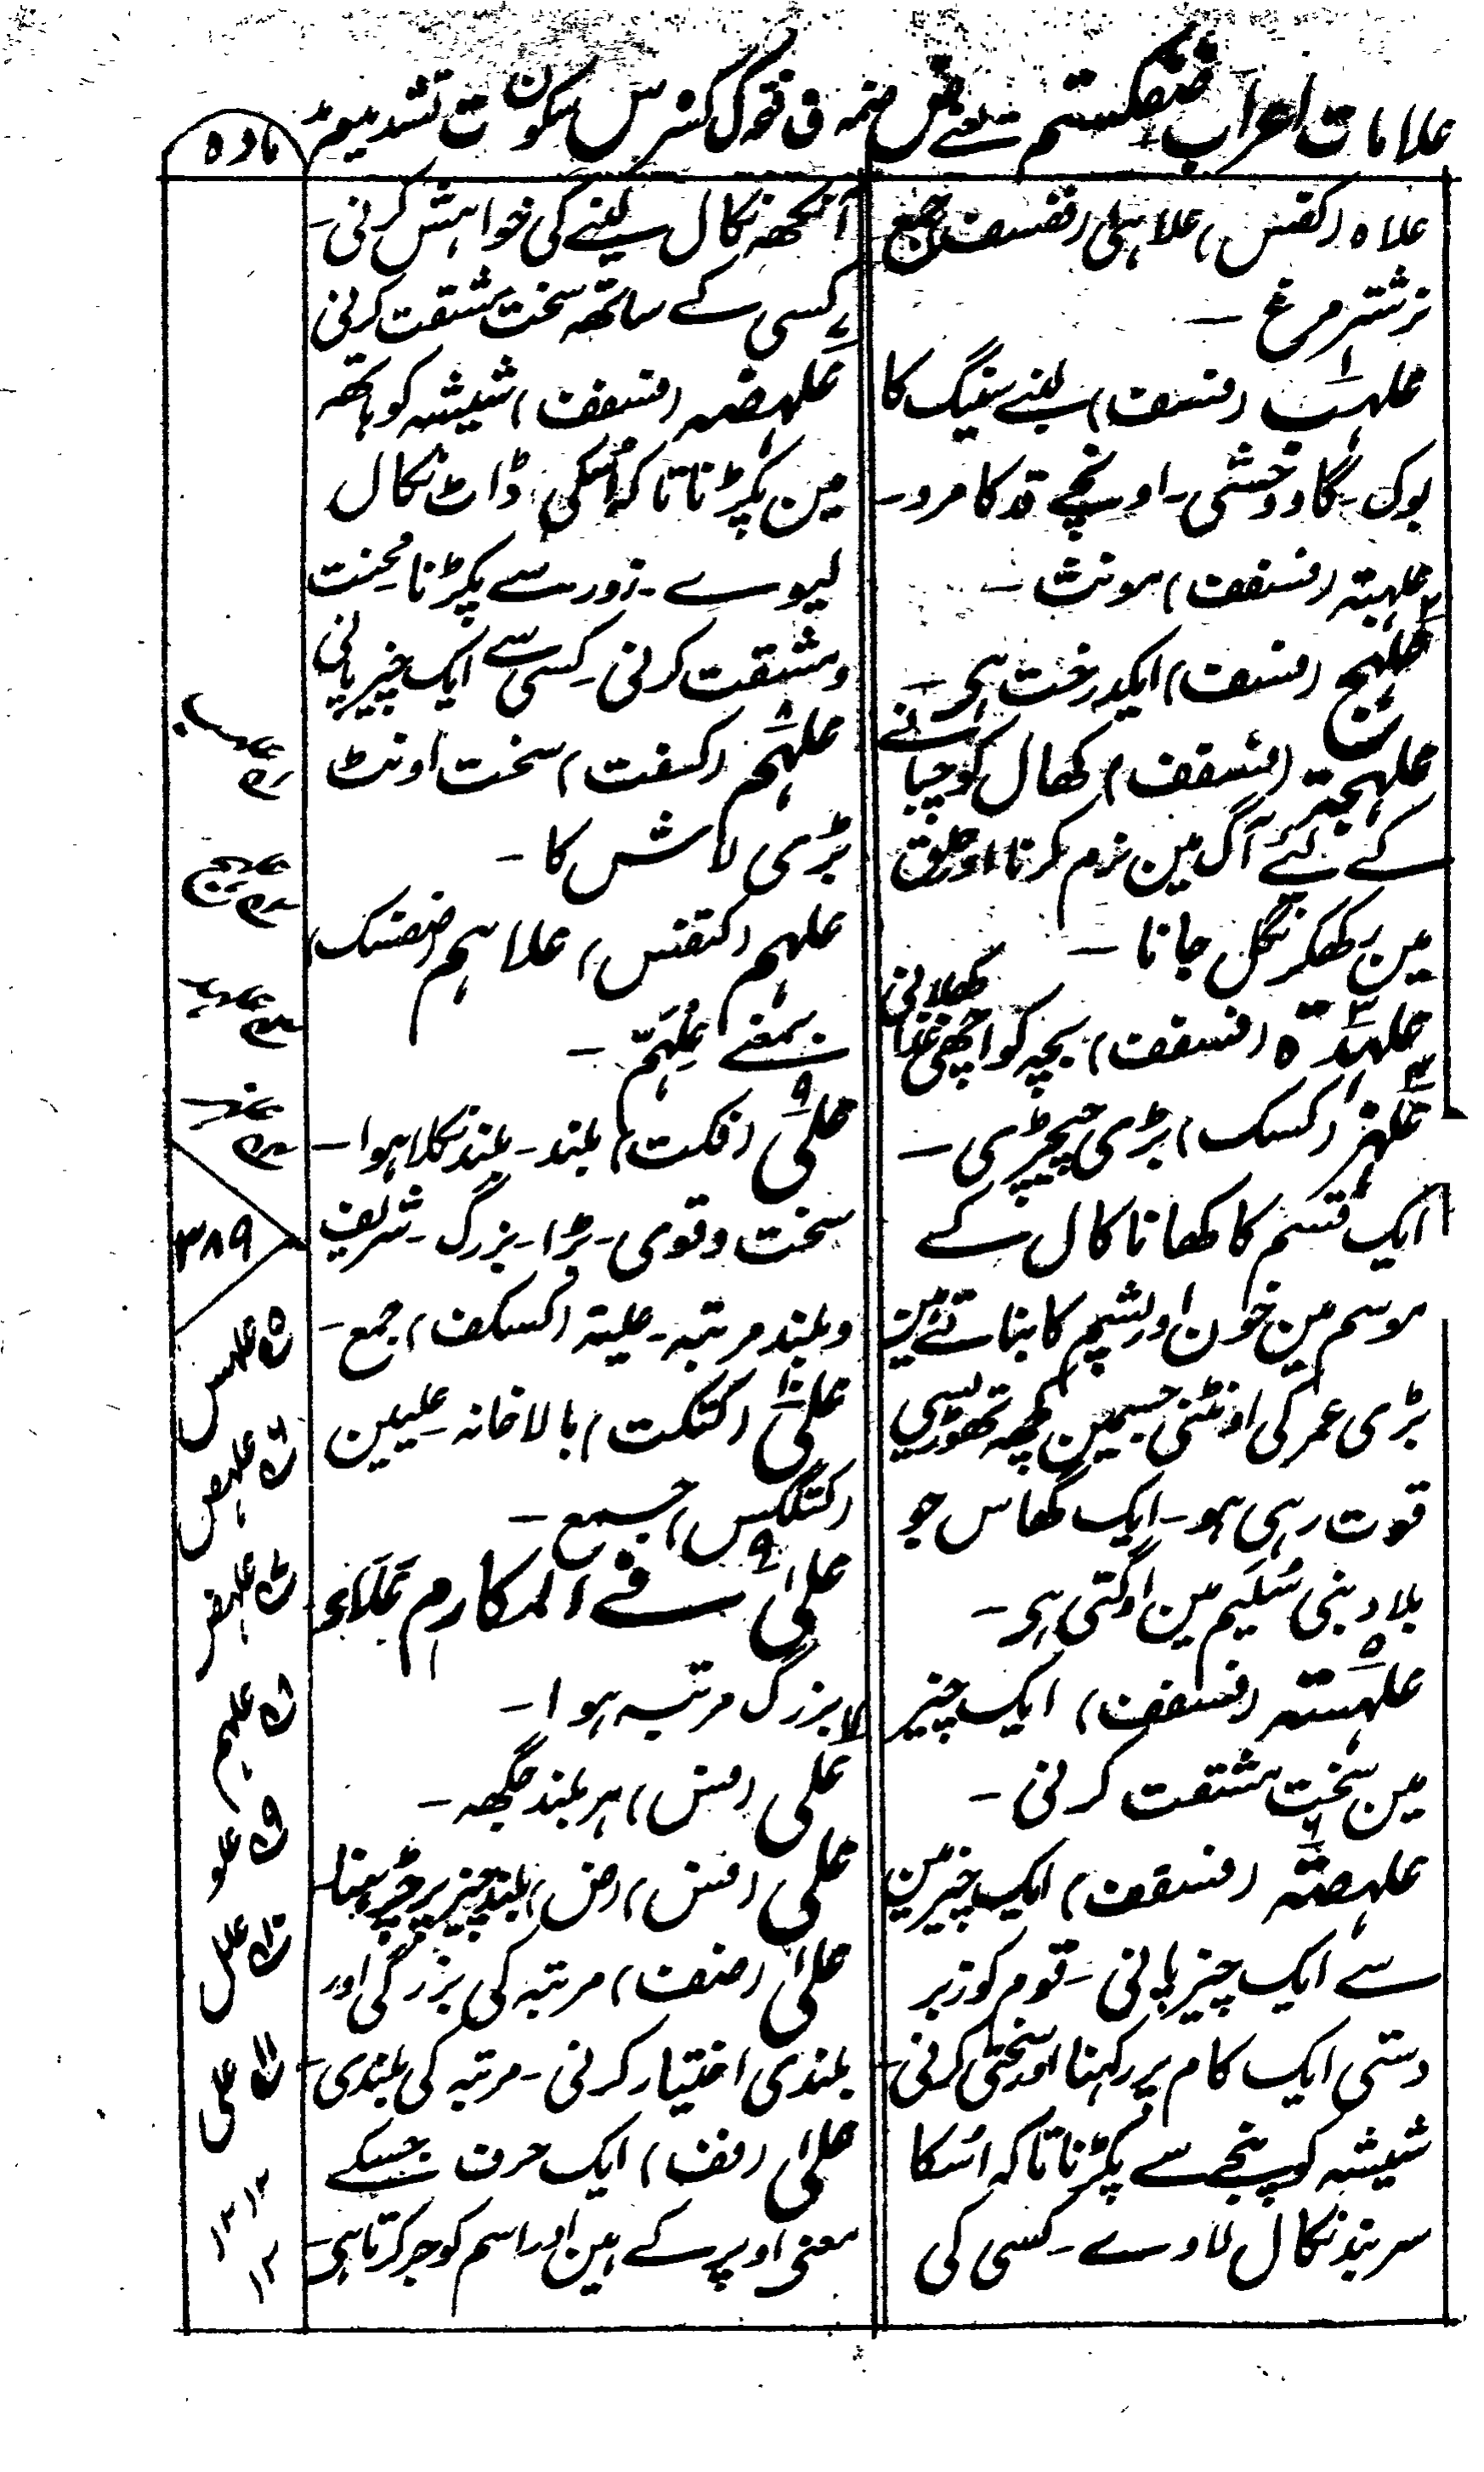 علامات اعراب یعنے ض ضمہ ف فتحہ ک کسرہ س سکون ت تشدید
مادہ
علاہ (کفس) علاہلی (ففسف) جمع
نرشتر مرغ –
علہب (فسف) لبنے سینگ کا
بوک - گاو وحشی - اونچے قد کا مرد -
علہبتہ (فسففت) مونث –
علہج (فسف) ایکدرخت ہی –
علہجتہ (فسففف) کھال کو چبانے
کے لئے آگ مین نرم کرنا اور حلق
مین رکھکر نگل جانا –
علہدۃ (فسففف) بچہ کو اچھی غذا کھلانی
علہز (کسک) بڑی چیچڑی –
ایک قسم کا کھانا کال کے
موسم مین خون اور پشم کا بناتے ہین
بڑی عمر کی اونٹنی جسمین کچھ تھوڑیسی
قوت رہی ہو - ایک گھاس جو
بلاد بنی سُلَیم مین اوگتی ہی –
علہستہ (فسففف) ایک چیز
مین سخت مشقت کرنی –
علہصتہ (فسففف) ایک چیز مین
سے ایک چیز پانی - قوم کو زبر
دستی ایک کام پر رکہنا اور سختی کرنی -
شیشہ کو پنجے سے پکڑنا تا کہ اُسکا
سربند نکال لاوے - کسی کی
آنکھہ نکال لینے کی خواہش کرنی -
کسی کے ساتھہ سخت مشقت کرنی
علہضہ (فسففف) شیشہ کو ہاتھہ
مین پکڑنا تا کہ اُسکی ڈاٹ نکال
لیوے - زور سے پکڑنا محنت
و مشقت کرنی - کِسی سے ایک چیز پانی
علہم (کسفت) سخت اونٹ
بڑی لاش کا –
علہم (کتفس) علاہم (ضفسک)
بمعنے عِلْہَمّ –
علی (فکت) بلند - بلند نکلا ہوا –
سخت و قوی - بڑا - بزرگ - شریف
و بلند مرتبہ - علیۃ (کسکف) جمع -
علی (کتکت) بالا خانہ - علیین
(کتککس) جمع –
علیٰ فے المکارم عَلَاء
بزرگ مرتبہ ہوا –
علی (فس) ہر بلند جگھہ –
علی (فس) (ض) بلند چیز پر چڑہنا -
علیٰ (ضف) مرتبہ کی بزرگی اور
بلندی اختیار کرنی - مرتبہ کی بلندی -
علیٰ (فف) ایک حرف جسکے
معنی اوپر کے ہین اور اسم کو جر کرتا ہی -
۳۸۹
۵ علہس
۶ علہص
۷ علہض
۸ علہم
۹ علو
۱۰ علل
۱۱ علی